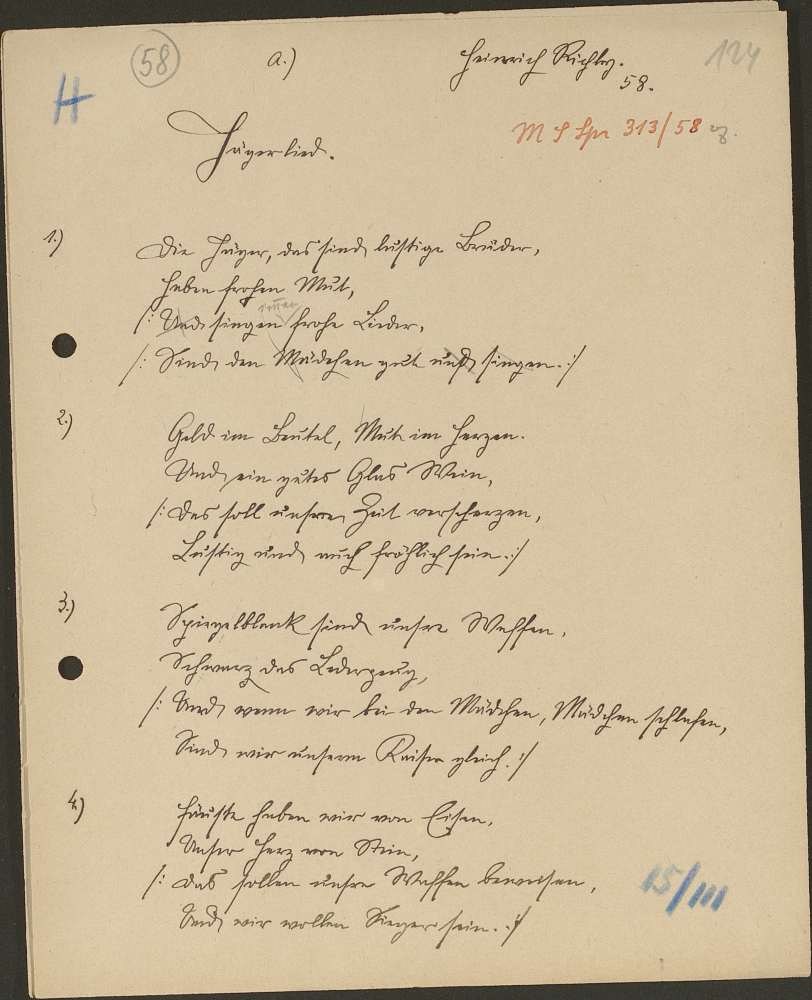 58
a.)
Heinrich
58.
124
H
313/58
Jägerlied.
1.)
Die Jäger, das sind lustige Brüder,
Haben frohen Mut,
/: Und singen frohe Lieder,
/: Sind den Mädchen gut und singen. :/
2.)
Geld im Beutel, Mut im Herzen.
Und ein gutes Glas Wein,
/: Das soll unsere Zeit verscherzen,
Lustig und auch fröhlich sein. :/
3.)
Spiegelblank sind unsre Waffen,
Schwarz das Lederzeug,
/: Und wenn wir bei den Mädchen, Mädchen schlafen,
Sind wir unserm Kaiser gleich. :/
4.)
Fäuste haben wir von Eisen,
Unser Herz von Stein,
/: Das sollen unsre Waffen beweisen,
Und wir wollen Sieger sein. :/
15/III